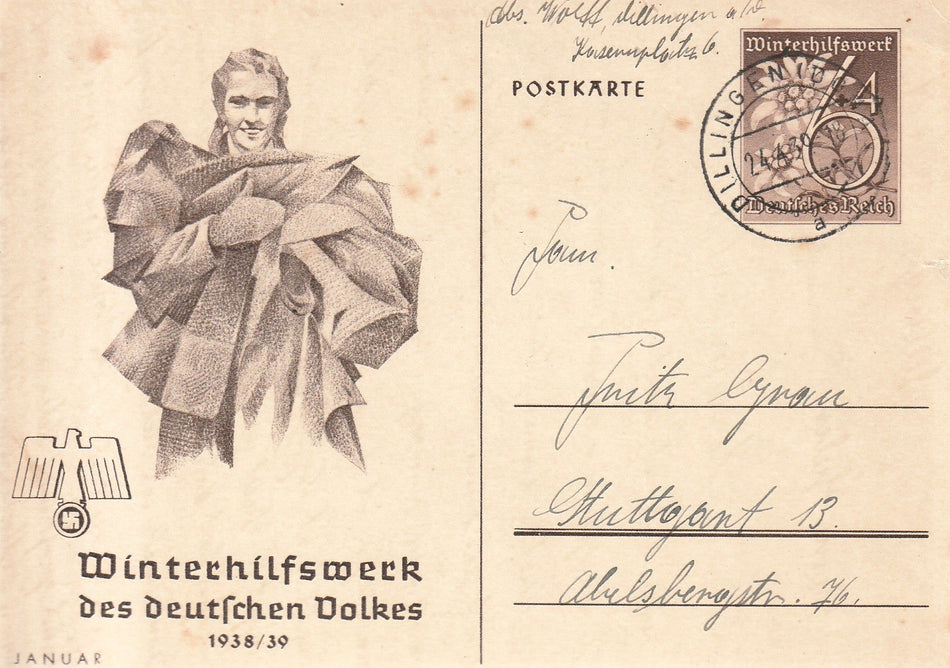 Abs. Wolff, Dillingen a/D.
Kasernplatz 6.
POSTKARTE
Winterhilfswerk
6+4
Deutsches Reich
DILLINGEN (DONAU)
24.4.39
a
Fritz Gyrau
Stuttgart 13.
Abelsbergstr. 76.
Winterhilfswerk
des deutschen Volkes
1938/39
JANUAR